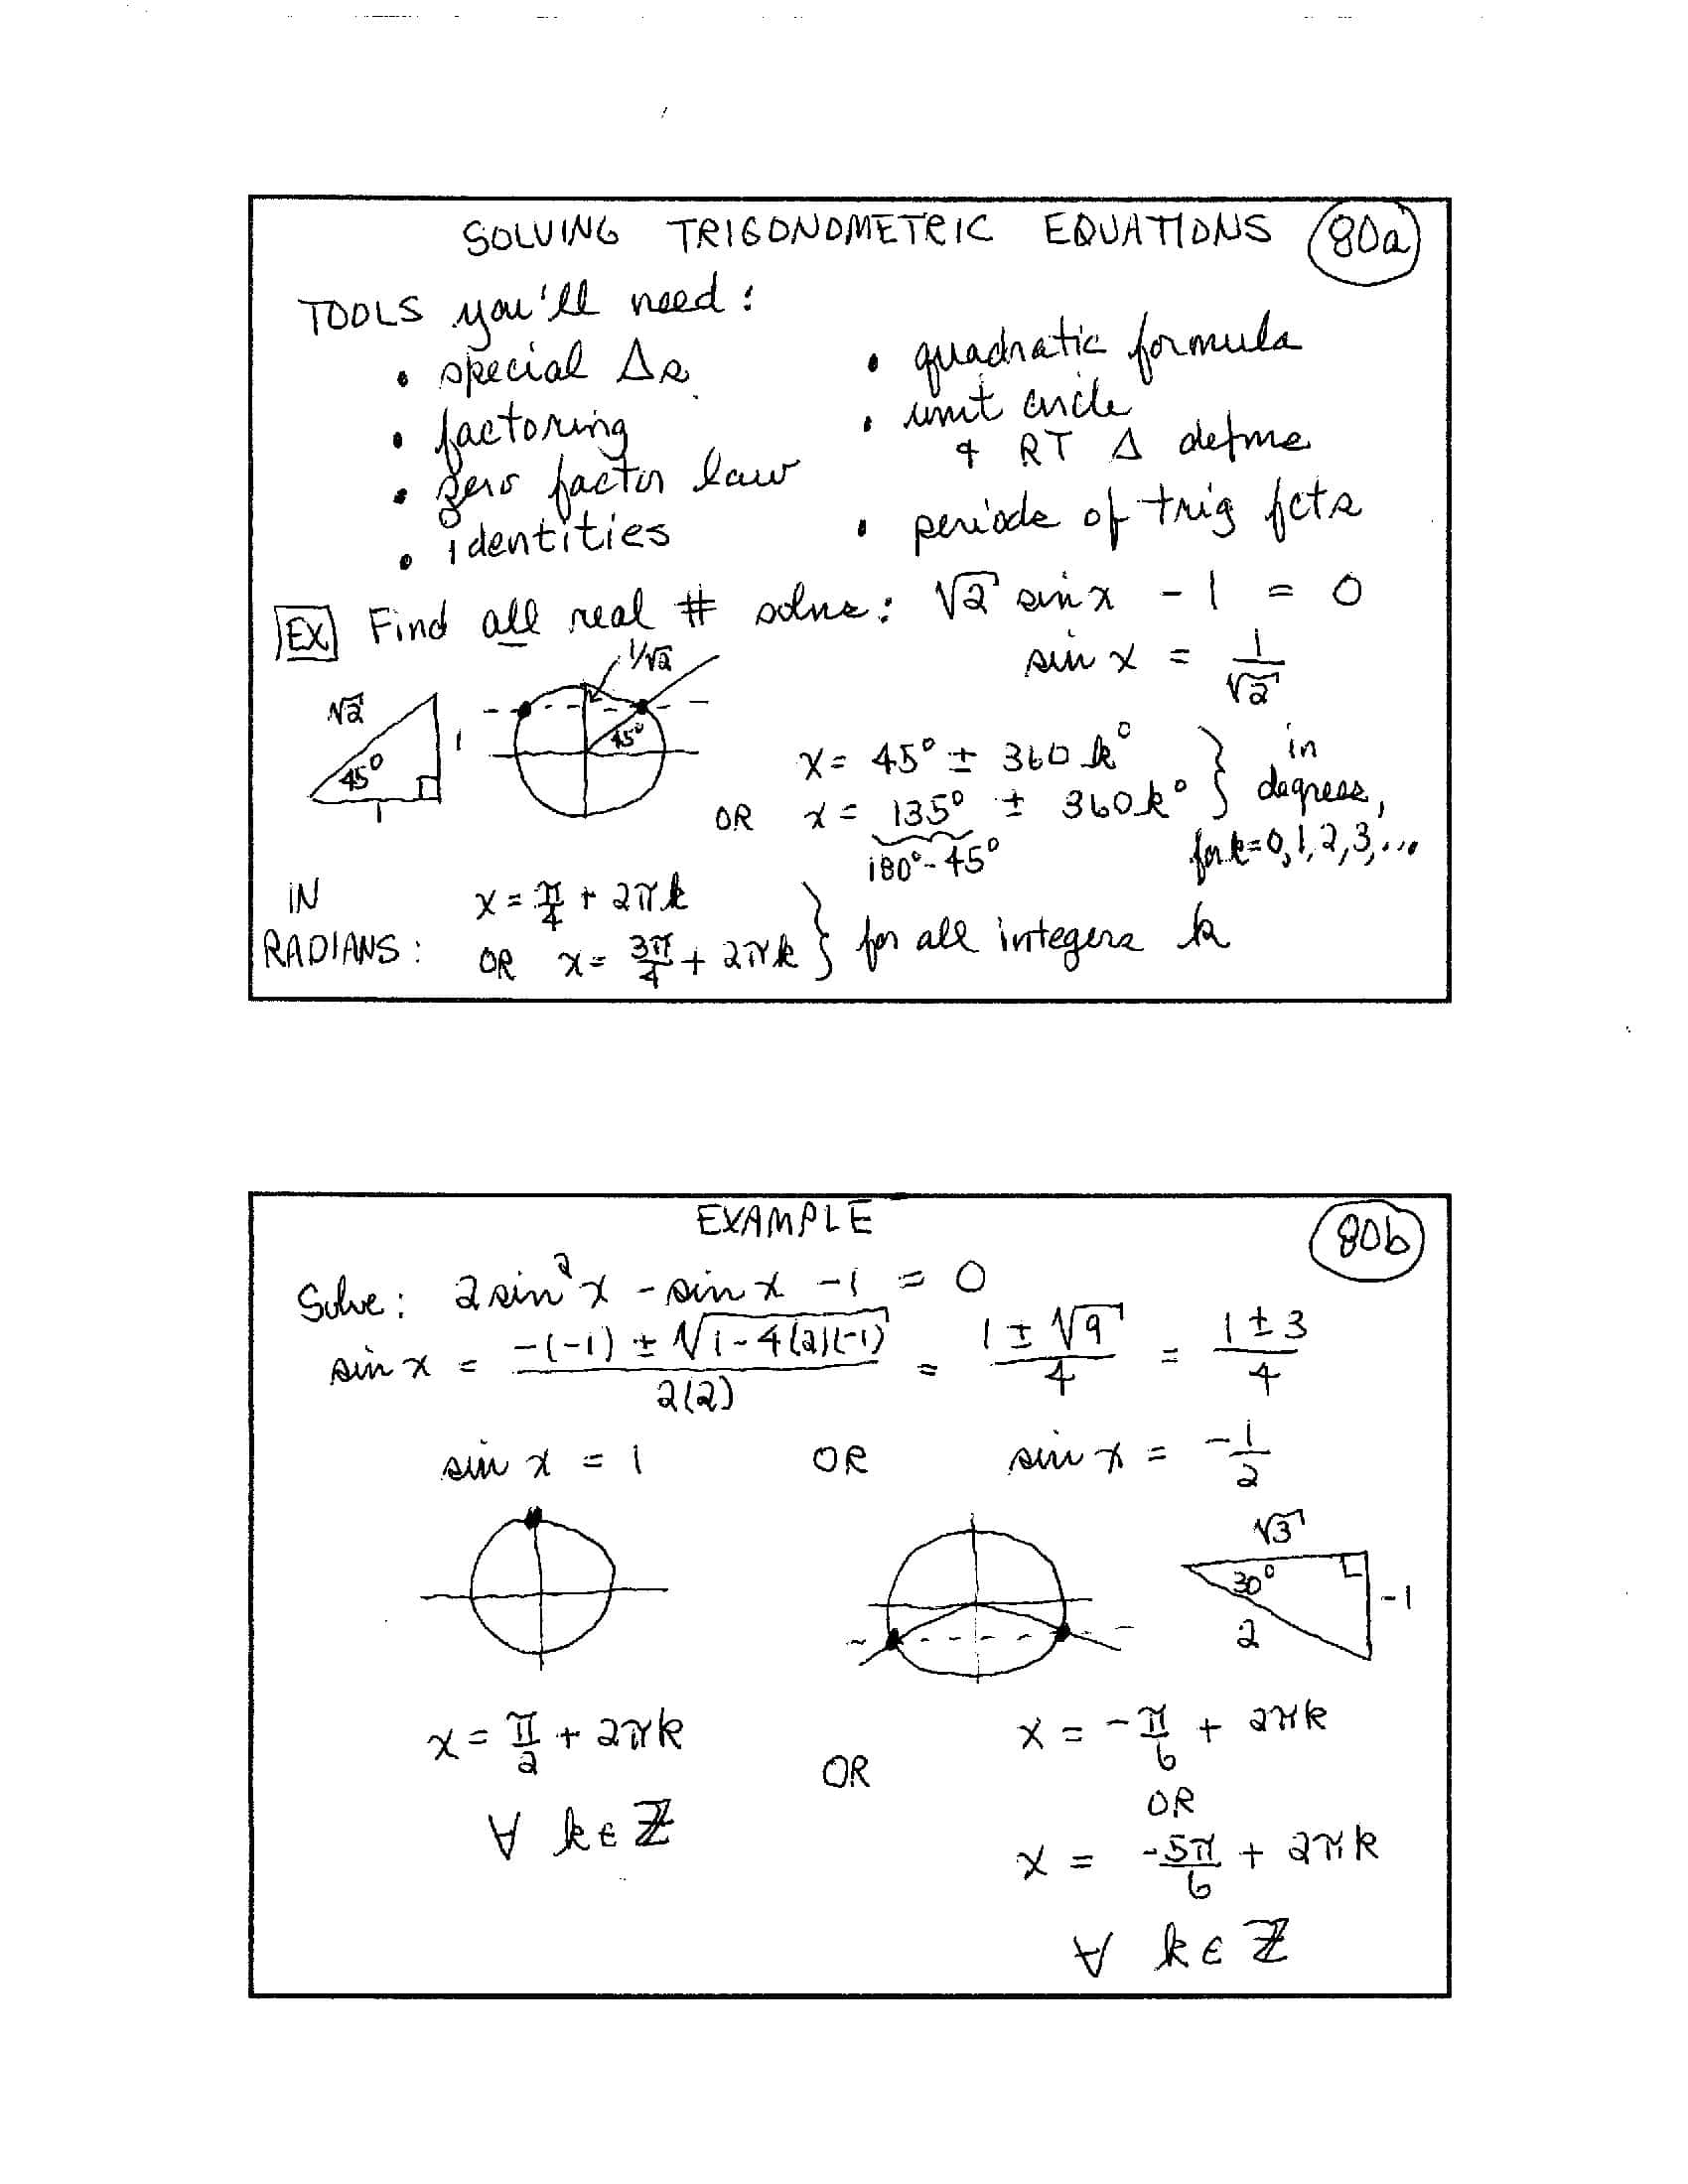 SOLVING TRIGONOMETRIC EQUATIONS 80a
TOOLS you'll need:
• special Δs
• factoring
• zero factor law
• identities
• quadratic formula
• unit circle
& RT Δ defins
• periods of trig fcts
EX Find all real # solns: √2 sin x - 1 = 0
sin x = 1/√2
√2 45° 1 1
1/√2 45°
x = 45° ± 360k°
OR x = 135° ± 360k° } in degrees,
180° - 45°
for k=0,1,2,3,...
IN RADIANS: x = π/4 + 2πk
OR x = 3π/4 + 2πk } for all integers k
EXAMPLE 80b
Solve: 2 sin²x - sin x - 1 = 0
sin x = (-(-1) ± √(1-4(2)(-1)))/(2(2)) = (1 ± √9)/4 = (1 ± 3)/4
sin x = 1 OR sin x = -1/2
√3 30° 2 -1
x = π/2 + 2πk OR x = -π/6 + 2πk
∀ k ∈ ℤ
OR
x = -5π/6 + 2πk
∀ k ∈ ℤ